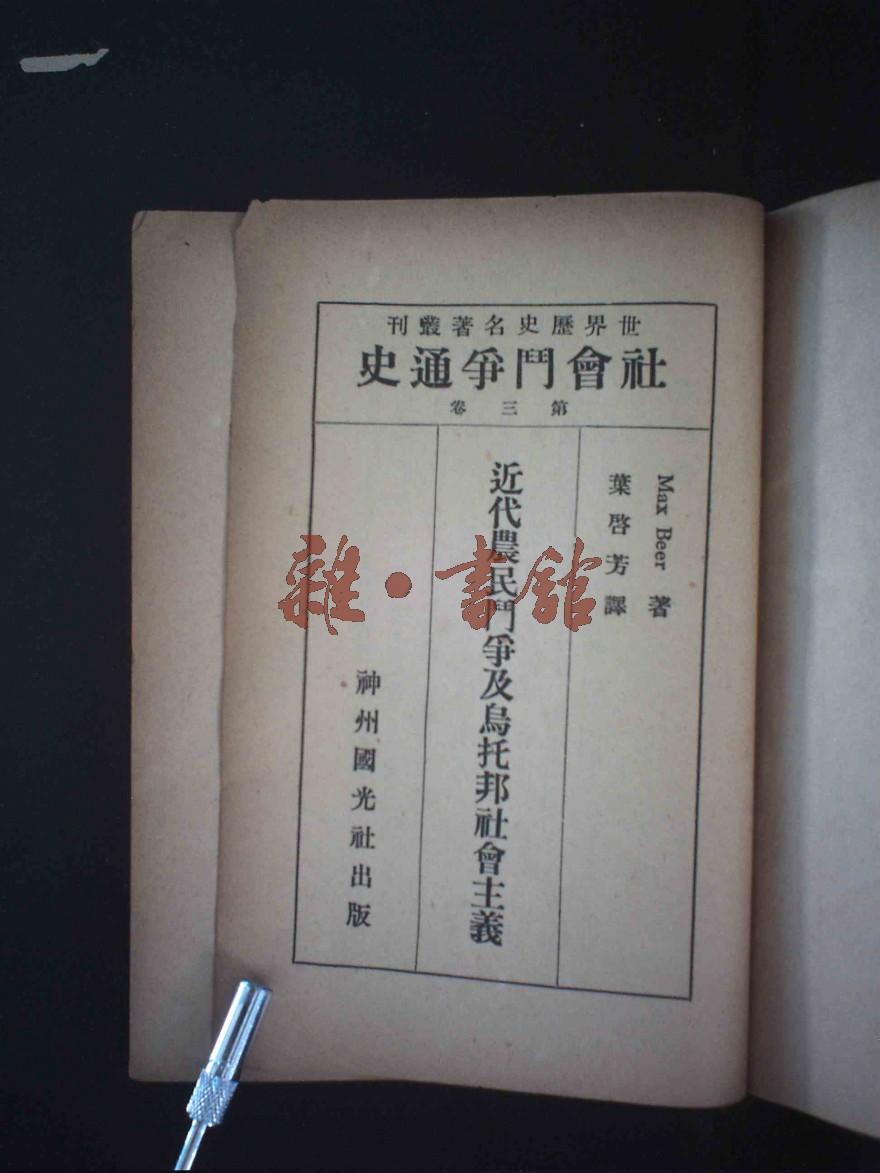 世界歷史名著叢刊
社會鬥爭通史
第三卷
Max Beer 著
葉啓芳譯
近代農民鬥爭及烏托邦社會主義
神州國光社出版
雜·書館